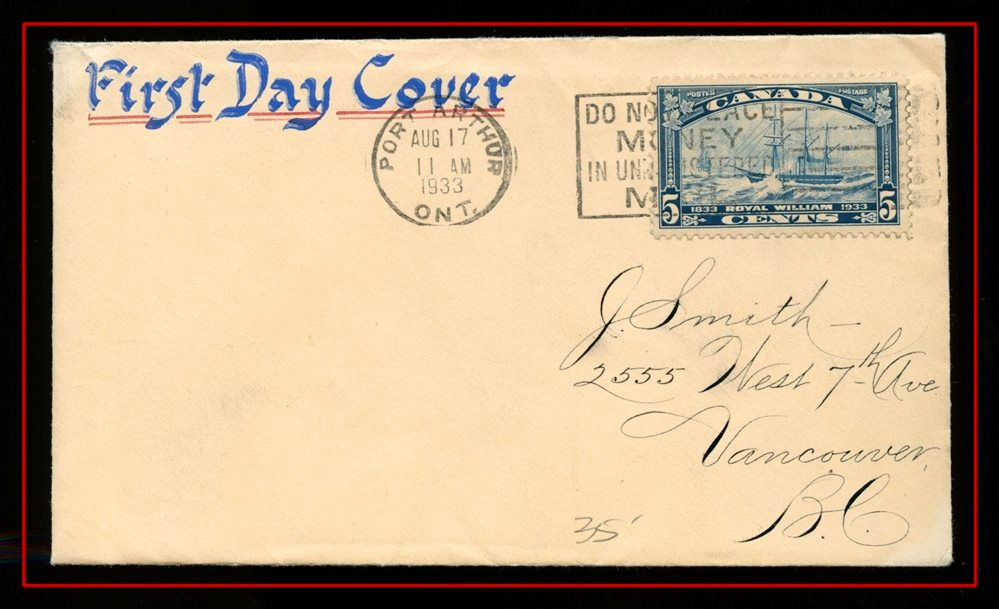 First Day Cover
PORT ARTHUR
AUG 17
11 AM
1933
ONT.
DO NOT PLACE
MONEY
IN UNREGISTERED
MAIL
POSTES POSTAGE
CANADA
5 1833 ROYAL WILLIAM 1933 5
CENTS
J. Smith
2555 West 7th Ave
Vancouver,
B.C.
35